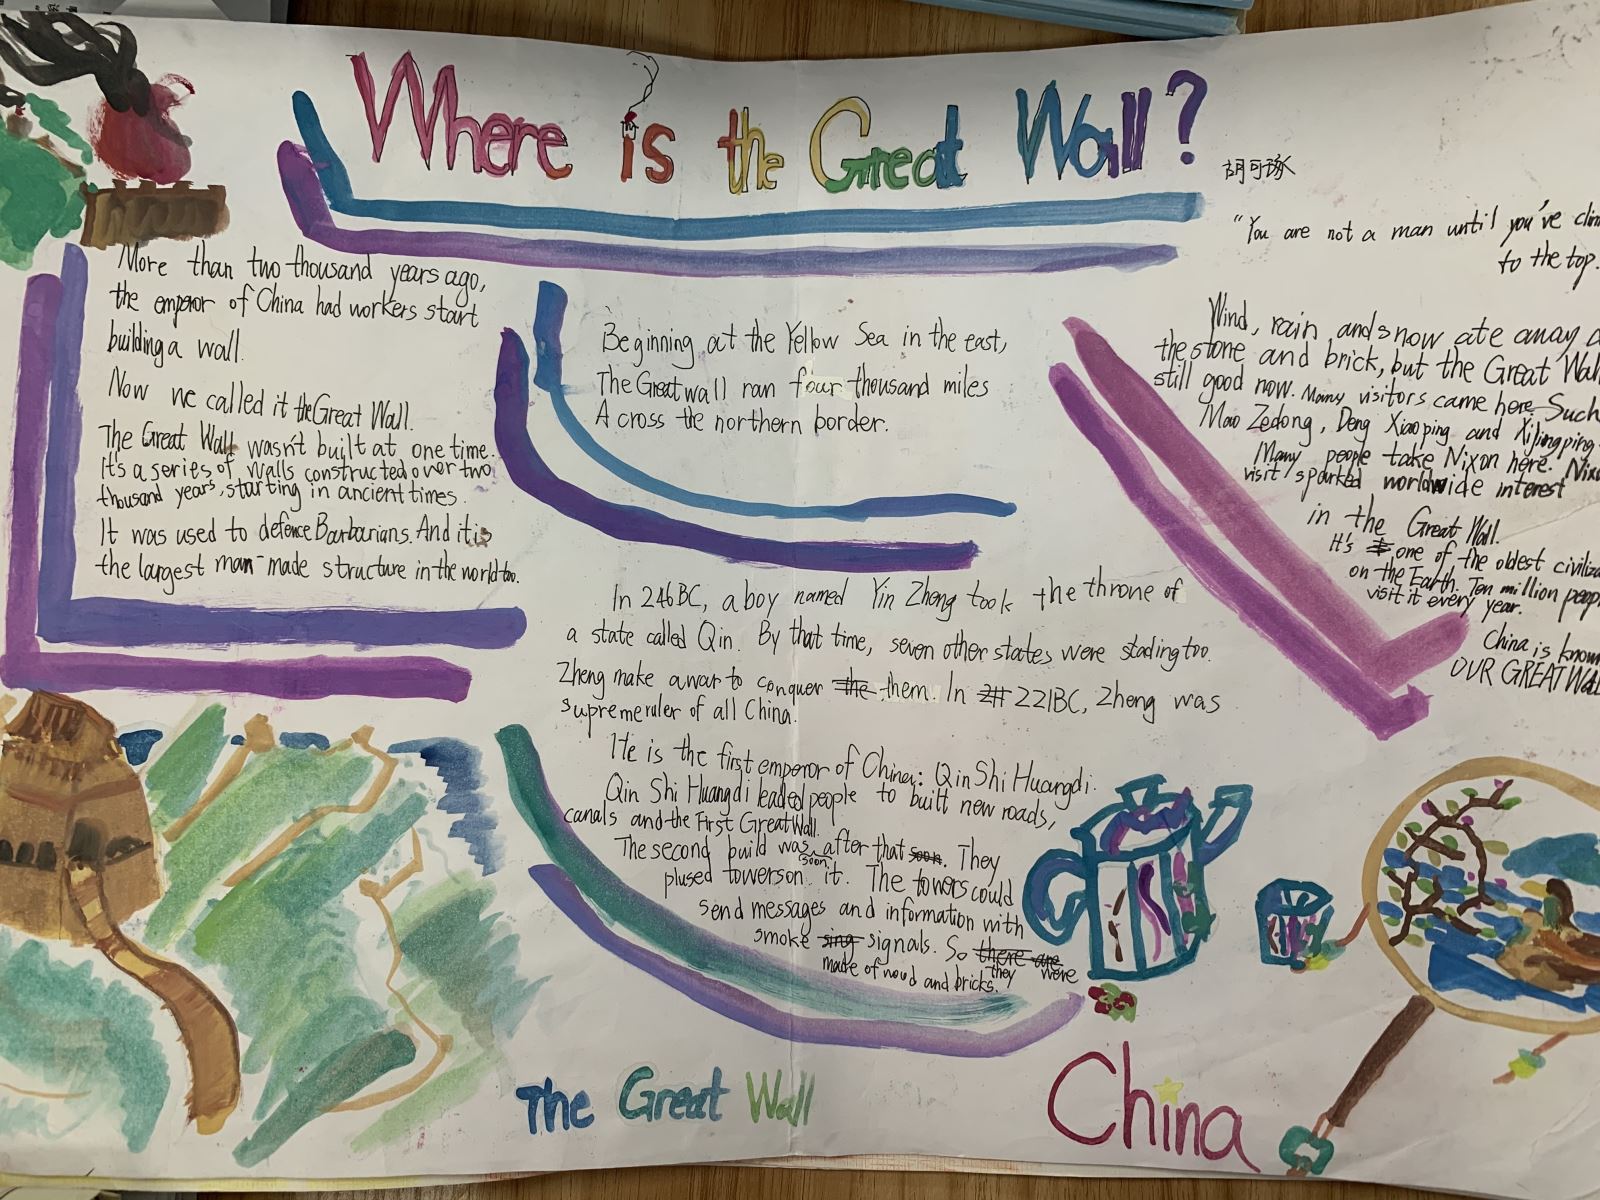 Where is the Great Wall?
胡可琢
More than two thousand years ago,
the emperor of China had workers start
building a wall.
Now we called it the Great Wall.
The Great Wall wasn't built at one time.
It's a series of walls constructed over two
thousand years, starting in ancient times.
It was used to defence Barbarians. And it is
the largest man-made structure in the world too.
Beginning at the Yellow Sea in the east,
The Great wall ran four thousand miles
Across the northern border.
In 246BC, a boy named Yin Zheng took the throne of
a state called Qin. By that time, seven other states were stading too.
Zheng make a war to conquer the them. In 221BC, Zheng was
supreme ruler of all China.
He is the first emperor of China: Qin Shi Huangdi.
Qin Shi Huangdi leaded people to built new roads,
canals and the First Great Wall.
The second build was soon after that soon. They
plused towers on it. The towers could
send messages and information with
smoke sing signals. So there are they were
made of wood and bricks.
"You are not a man until you've
to the top.
Wind, rain and snow ate away
the stone and brick, but the Great Wall
still good now. Many visitors came here. Such
Mao Zedong, Deng Xiaoping and Xijingping
Many people take Nixon here.
visit sparked worldwide interest
in the Great Wall.
It's one of the oldest
on the Earth. Ten million
visit it every year.
China is
OUR GREAT
The Great Wall
China